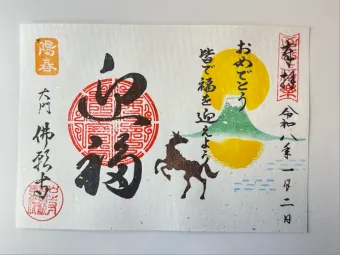 奉拝
令和八年一月二日
おめでとう
皆で福を迎えよう
迎福
陽春
大門 佛願寺